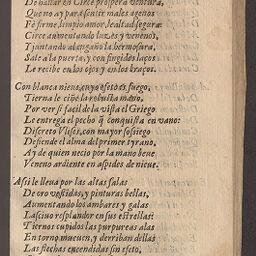 De hallar en Circe prospera ventura,
Que no ay para sentir males agenos
Fè firme, limpio amor, lealtad segura:
Circe aumentando luzes y venenos,
Y juntando al engaño la hermosura,
Sale a la puerta, y con fingidos laços
Le recibe en los ojos y en los braços.
Con blanca nieue, en yo esto es fuego,
Tierna le ciñe la robusta mano,
Por ver si facil de la vista el Griego
Le entrega el pecho q̃ conquista en vano:
Discreto Vlises, con mayor sossiego
Defiende el alma del primer tyrano,
Ay de quien necio por la mano beue
Veneno ardiente en aspides de nieue.
Assi le lleua por las altas salas
De oro vestidas, y pinturas bellas,
Aumentando los ambares y galas
Lasciuo resplandor en sus estrellas:
Tiernos cupidos las purpureas alas
En torno mueuen, y derriban dellas
Las flechas encendidas sin efeto,